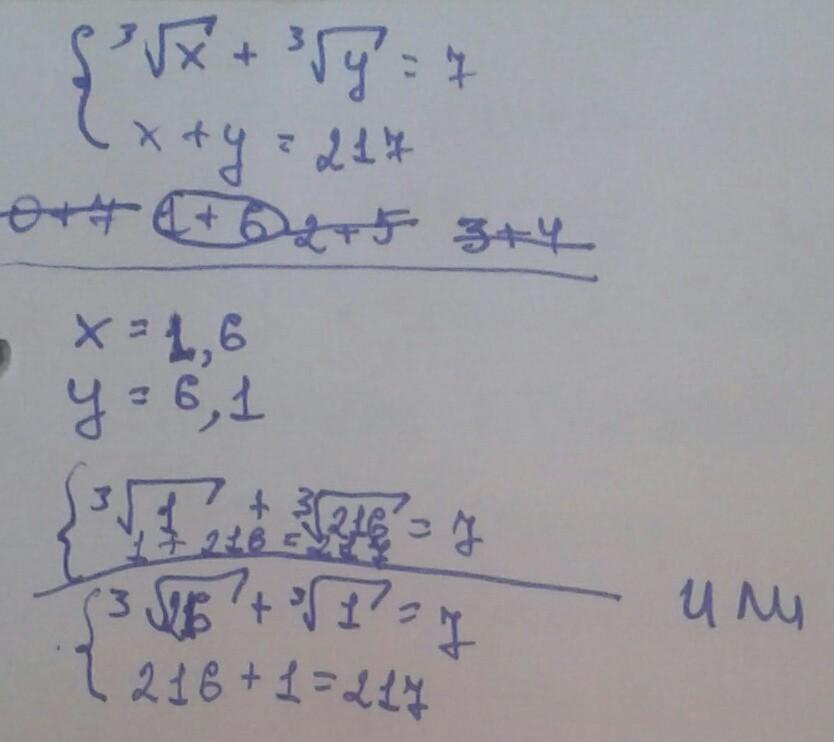 { ³√x + ³√y = 7
x + y = 217
0+7 1+6 2+5 3+4
x = 1,6
y = 6,1
{ ³√1 + ³√216 = 7
1 + 216 = 217
{ ³√216 + ³√1 = 7 или
216 + 1 = 217